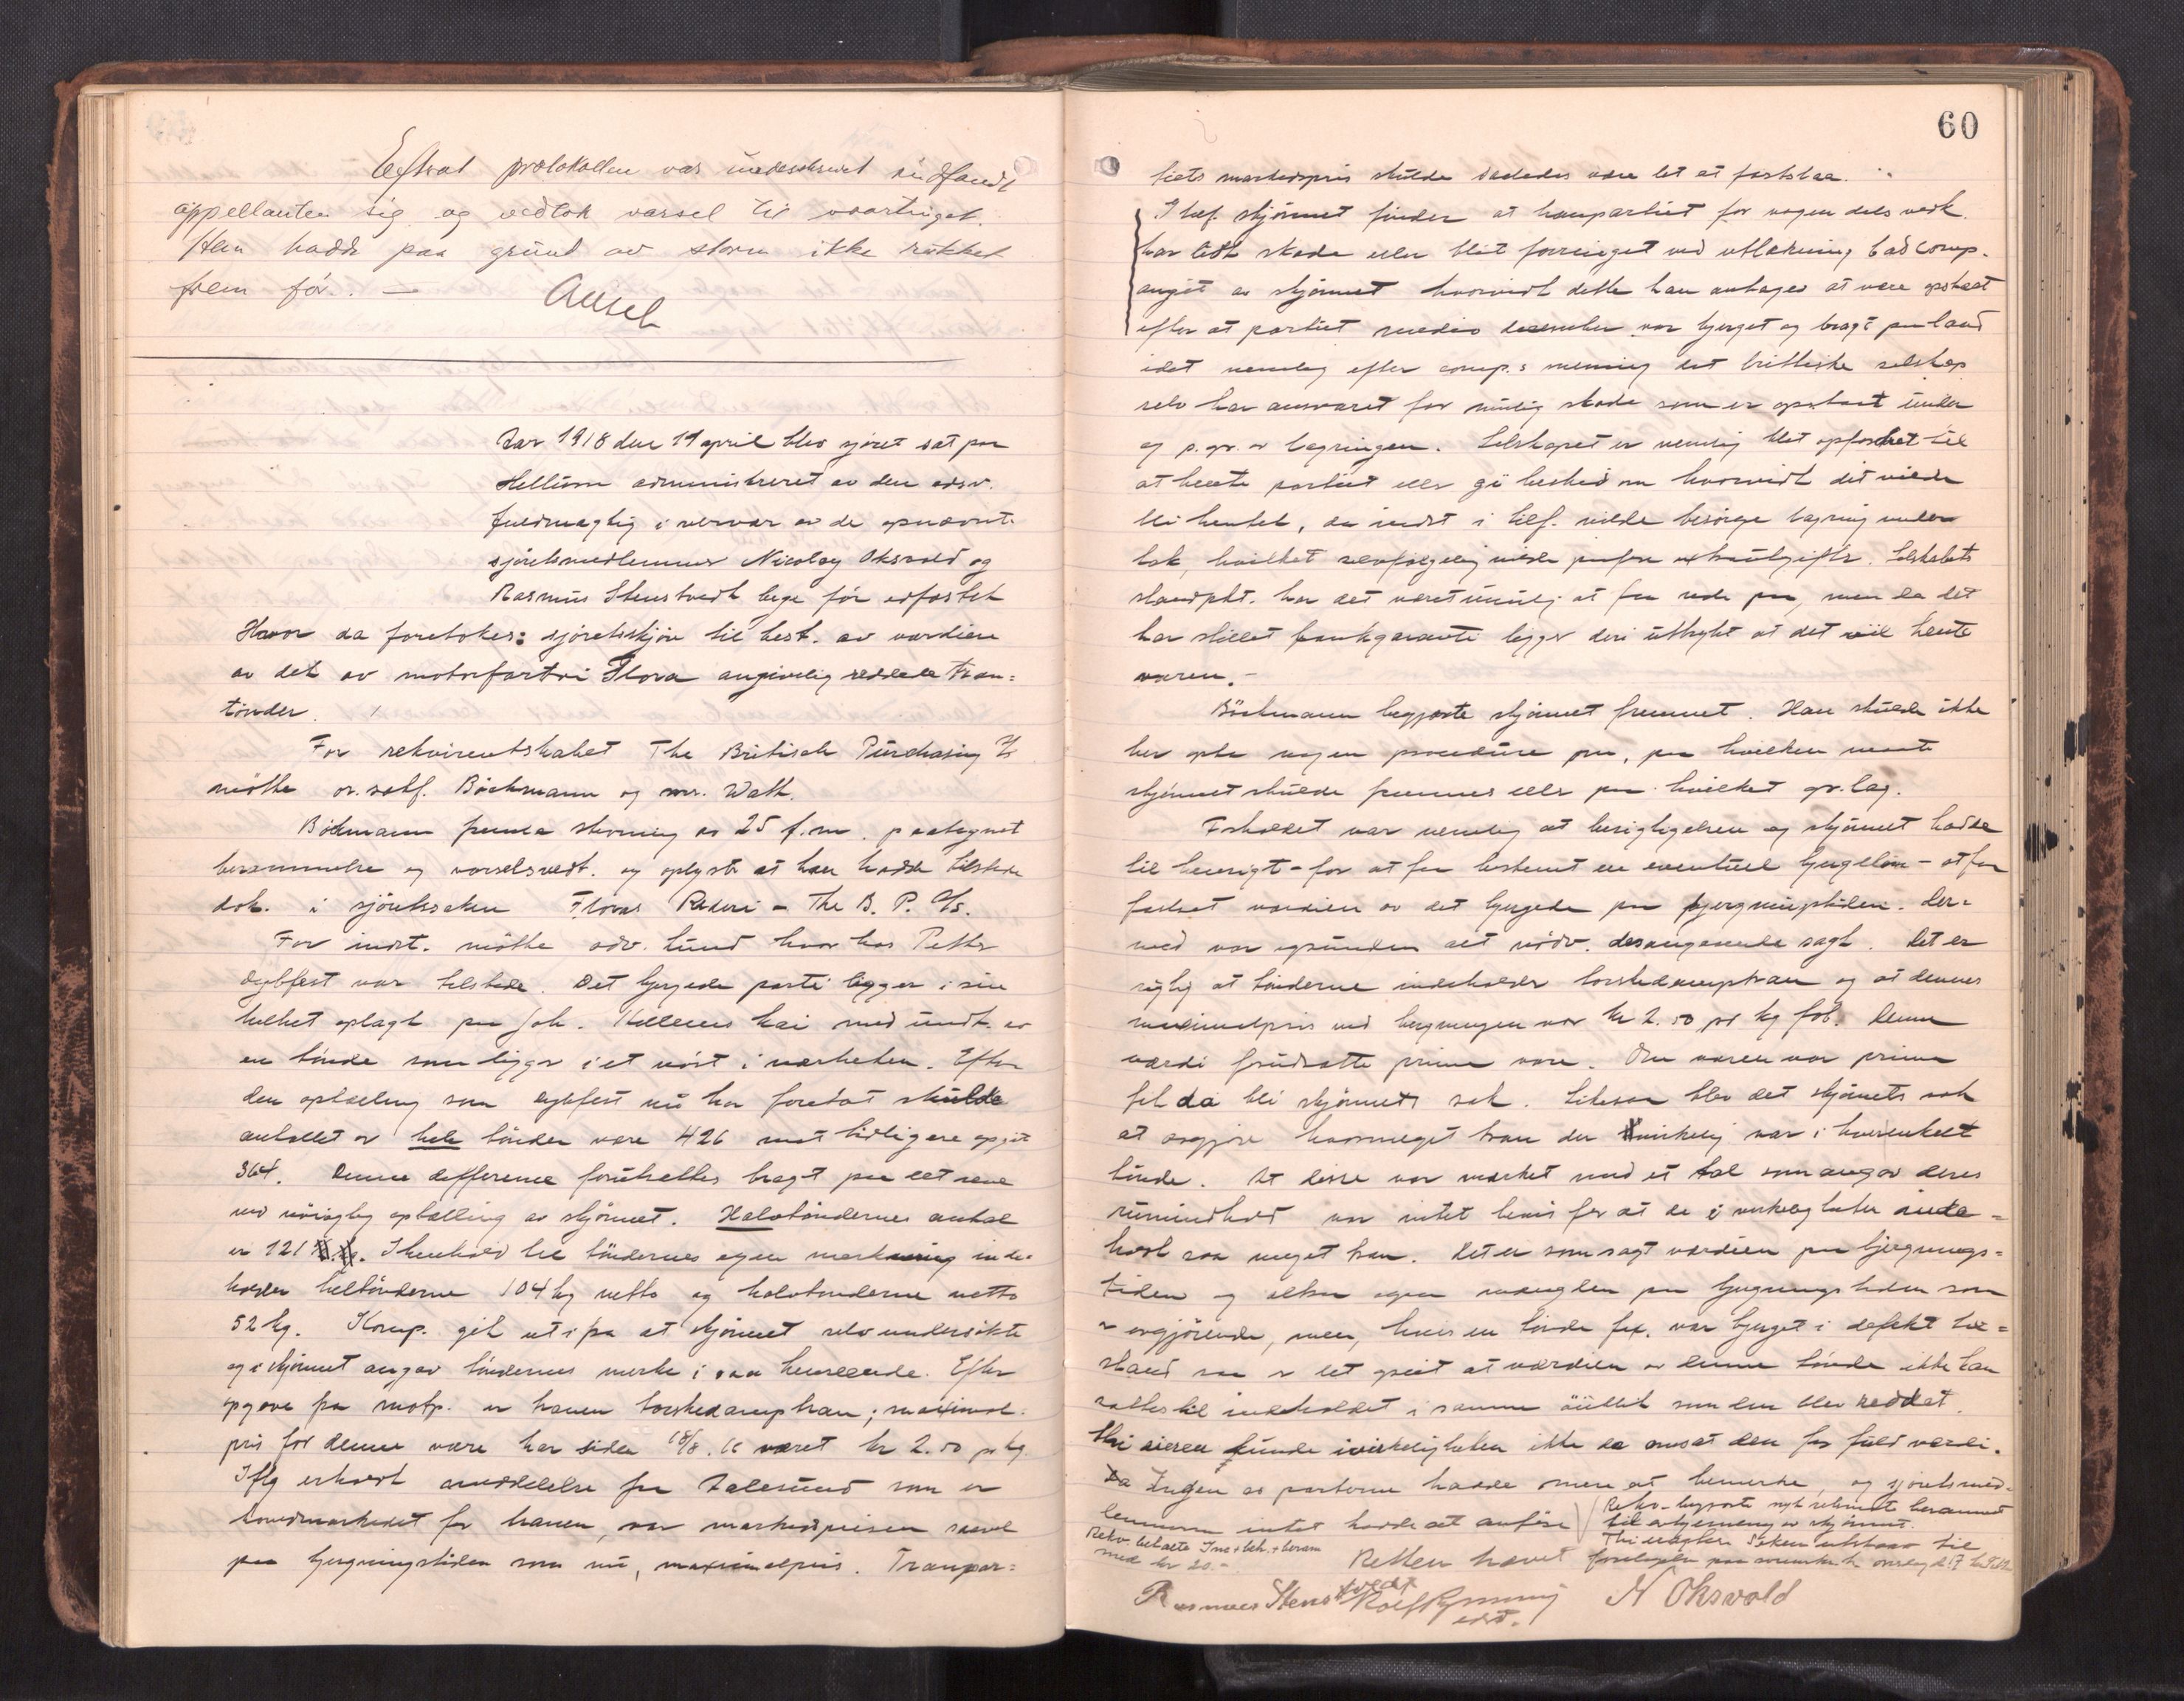 Efterat protokollen var underskrevet indfandt
appellanten sig og vedtok varsel til vaartinget.
Han hadde paa grund av storm ikke rukket
frem før. —
Aar 1918 den 14 april blev sjøret sat paa
Hellum administreret av den edsv.
fuldmægtig i nærvær av de opnævnte
sjøretsmedlemmer Nicolay Oksvold og
Rasmus Stenstvedt bege før edfæstet
Hvor da foretokes: sjøretsskjøn til best. av værdien
av det av motorfartøi Flora angivelig reddede tran=
tønder.
For rekvirentskabet The British Purchasing
møtte or.sakf. Bøckmann og mr. Watt.
Bøckmann fremla stevning av 25 f.m. paategnet
berammelse og varselsvedt. og oplyste at han hadde tilstede
dok. i sjøretssaken Floras Rederi - The B. P. A/S.
For indst. møtte adv. Lund hvorhos Petter
Dybfest var tilstede. Det bjergede parti ligger i sin
helhet oplagt paa Joh. kai med undt. av
en tønde som ligger i et nøst i nærheten. Efter
den optælling som Dybfest nu har foretat skulde
antallet av hele tønder være 426 mot tidligere opgit
364. Denne difference forutsættes bragt paa det rene
ved nøiagtig optælling av skjønnet. Halvtøndernes antal
er 121. I henhold til tøndernes egen merkning inde-
holder heltønderne 104 kg netto og halvtønderne netto
52 kg. Komp. gik ut ifra at skjønnet selv undersøkte
og i skjønnet angav tøndernes merke i saa henseende. Efter
opgave fra motp. er tranen torskedamptran; maximal-
pris for denne vare har siden 18/8.16 været kr 2.50 pr kg.
Iflg erholdt meddelelse fra Aalesund som er
hovedmarkedet for tranen, var markedsprisen saavel
paa bjergningstiden som nu, maximalpris. Tranpar=
60
tiets markedspris skulde saaledes være let at fastslaa.
I tilf. skjønnet finder at tranpartiet for nogen dels vedk.
har lidt skade eller blit forringet ved utlækning bad comp.
angit av skjønnet hvorvidt dette kan antages at være opstaat
efter at partiet medio december var bjerget og bragt paa land
idet nemlig efter comp.s mening det brittiske selskap
selv har ansvaret for mulig skade som er opstaat under
og p.gr. av lagringen. Selskapet er nemlig blit opfordret til
at hente partiet eller gi besked om hvorvidt det vilde
bli hentet, da indst i tilf. vilde besørge lagring under
tak, hvilket selvfølgelig vilde paaføre extrautgifter. Selskabets
standpkt. har det været umulig at faa rede paa, men da det
har stillet bankgaranti ligger deri uttrykt at det vil hente
varen.-
Bøckmann begjærte skjønnet fremmet. Han skulde ikke
her opta nogen procedure om, paa hvilken maate
skjønnet skulde fremmes eller paa hvilket gr.lag.
Forholdet var nemlig at besigtigelsen og skjønnet hadde
til hensigt - for at faa bestemt en eventuel bjergeløn - at faa
fastsat værdien av det bjergede paa bjergningstiden. Der=
med var ogsaa det nødv. desangaaende sagt. Det er
rigtig at tønderne indeholder torskedamptran og at dennes
maximalpris ved bergningen var kr 2.50 pr kg fob. Denne
værdi forutsatte prima vare. Om varen var prima
fik da bli skjønnets sak. Likesaa blev det skjønnets sak
at avgjøre hvormeget tran der virkelig var i hver enkelt
tønde. At disse var merket med et tal som angav deres
rumindhold var intet bevis for at de i virkeligheten inde=
holdt saa meget tran. Det er som sagt værdien paa bjergnings=
tiden og altsaa ogsaa mænglen paa bjergningstiden som
er avgjørende, men, hvis en tønde fex. var bjerget i defekt til=
stand saa er det greit at værdien av denne tønde ikke kan
sættes til indholdet i samme øieblik som den blev reddet.
thi eieren kunde i virkeligheten ikke da omsat den for fuld værdi.
Da Ingen av parterne hadde mere at bemerke, og sjøretsmed-
lemmerne intet hadde at anføre
Rekv. begjærte nyt retsmøt berammet
til avhjemling av skjønnet.
Thi utsættes Saken
Rekv. betalte
med kr 20.-
Retten hævet
Rasmus Stenstvedt
N Oksvold
edsv.